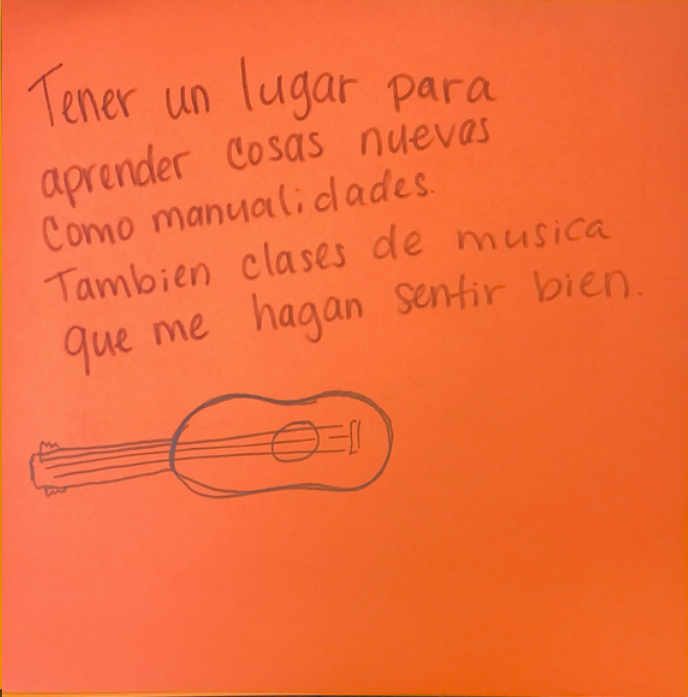 Tener un lugar para
aprender cosas nuevas
Como manualidades.
Tambien clases de musica
que me hagan sentir bien.